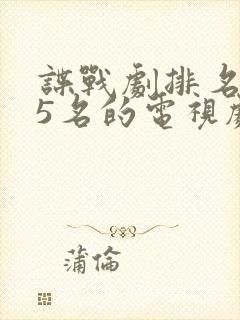 諜戰劇排名
5名的電視劇
蒲倫